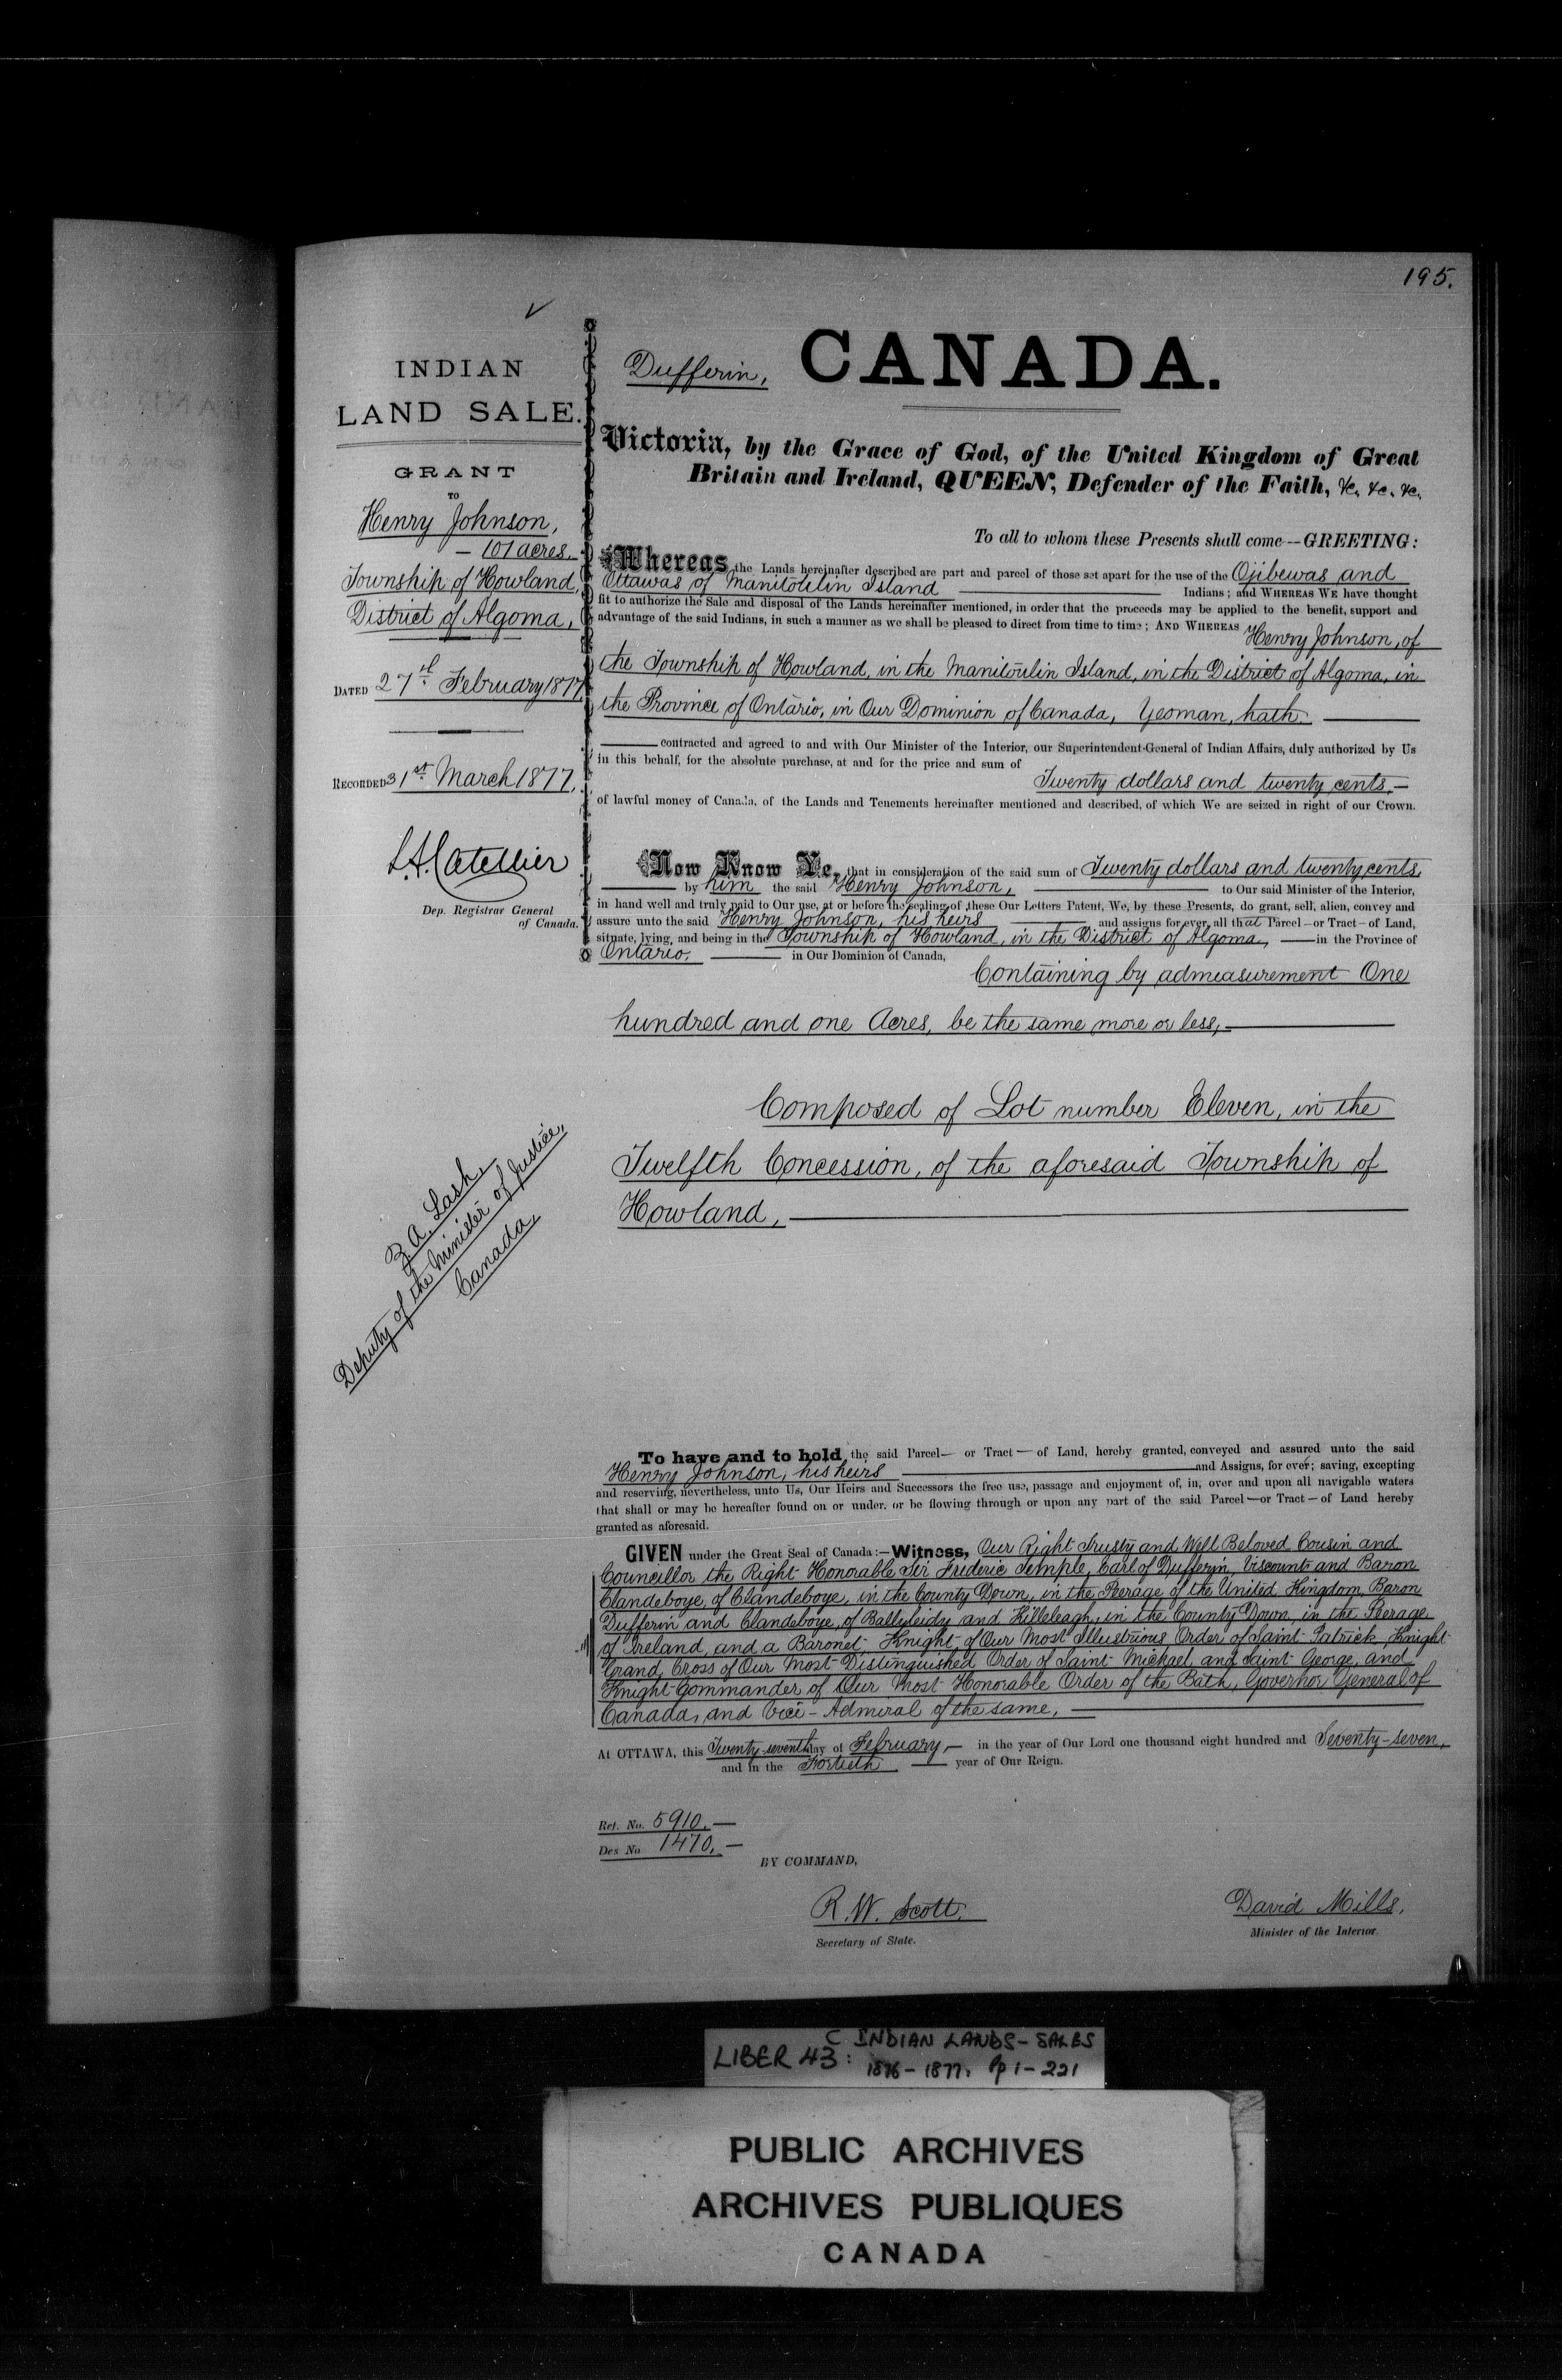 195.
INDIAN
LAND SALE.
GRANT
TO
Henry Johnson,
— 101 acres.
Township of Howland,
District of Algoma,
DATED 27th February 1877
RECORDED 31st March 1877,
L.A. Catellier
Dep. Registrar General
of Canada.
Z. A. Lash,
Deputy of the Minister of Justice,
Canada,
Dufferin, CANADA.
Victoria, by the Grace of God, of the United Kingdom of Great
Britain and Ireland, QUEEN, Defender of the Faith, &c. &c. &c.
To all to whom these Presents shall come—GREETING:
Whereas the Lands hereinafter described are part and parcel of those set apart for the use of the Ojibewas and
Ottawas of Manitoulin Island — Indians; and WHEREAS WE have thought
fit to authorize the Sale and disposal of the Lands hereinafter mentioned, in order that the proceeds may be applied to the benefit, support and
advantage of the said Indians, in such a manner as we shall be pleased to direct from time to time; AND WHEREAS Henry Johnson, of
the Township of Howland, in the Manitoulin Island, in the District of Algoma, in
the Province of Ontario, in Our Dominion of Canada, Yeoman, hath —
— contracted and agreed to and with Our Minister of the Interior, our Superintendent-General of Indian Affairs, duly authorized by Us
in this behalf, for the absolute purchase, at and for the price and sum of
Twenty dollars and twenty cents, —
of lawful money of Canada, of the Lands and Tenements hereinafter mentioned and described, of which We are seized in right of our Crown.
Now Know Ye, that in consideration of the said sum of Twenty dollars and twenty cents,
— by him the said Henry Johnson, — to Our said Minister of the Interior,
in hand well and truly paid to Our use, at or before the sealing of these Our Letters Patent, We, by these Presents, do grant, sell, alien, convey and
assure unto the said Henry Johnson, his heirs — and assigns for ever, all that Parcel — or Tract — of Land,
situate, lying, and being in the Township of Howland, in the District of Algoma, — in the Province of
Ontario, — in Our Dominion of Canada,
Containing by admeasurement One
hundred and one Acres, be the same more or less, —
Composed of Lot number Eleven, in the
Twelfth Concession, of the aforesaid Township of
Howland, —
To have and to hold the said Parcel — or Tract — of Land, hereby granted, conveyed and assured unto the said
Henry Johnson, his heirs — and Assigns, for ever; saving, excepting
and reserving, nevertheless, unto Us, Our Heirs and Successors the free use, passage and enjoyment of, in, over and upon all navigable waters
that shall or may be hereafter found on or under, or be flowing through or upon any part of the said Parcel — or Tract — of Land hereby
granted as aforesaid.
GIVEN under the Great Seal of Canada:—Witness, Our Right Trusty and Well Beloved Cousin and
Councillor the Right Honorable Sir Frederic Temple, Earl of Dufferin, Viscount and Baron
Clandeboye, of Clandeboye, in the County Down, in the Peerage of the United Kingdom, Baron
Dufferin and Clandeboye, of Ballyleidy and Killeleagh, in the County Down, in the Peerage
of Ireland, and a Baronet, Knight of Our Most Illustrious Order of Saint Patrick, Knight
Grand Cross of Our Most Distinguished Order of Saint Michael and Saint George, and
Knight Commander of Our Most Honorable Order of the Bath, Governor General of
Canada, and Vice-Admiral of the same, —
At OTTAWA, this Twenty seventh day of February, — in the year of Our Lord one thousand eight hundred and Seventy-seven,
and in the Fortieth — year of Our Reign.
Ref. No. 5910. —
Des No 1470, —
BY COMMAND,
R. W. Scott.
Secretary of State.
David Mills,
Minister of the Interior.
LIBER 43: C INDIAN LANDS - SALES
1876 - 1877. Pp 1 - 221
PUBLIC ARCHIVES
ARCHIVES PUBLIQUES
CANADA